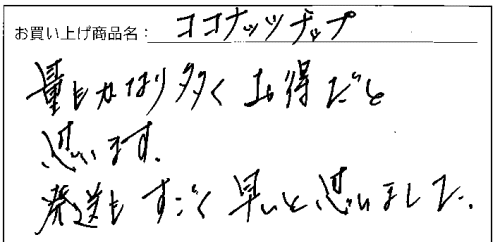 お買い上げ商品名：ココナッツチップ
量もかなり多くお得だと
思います.
発送もすごく早いと思いました.